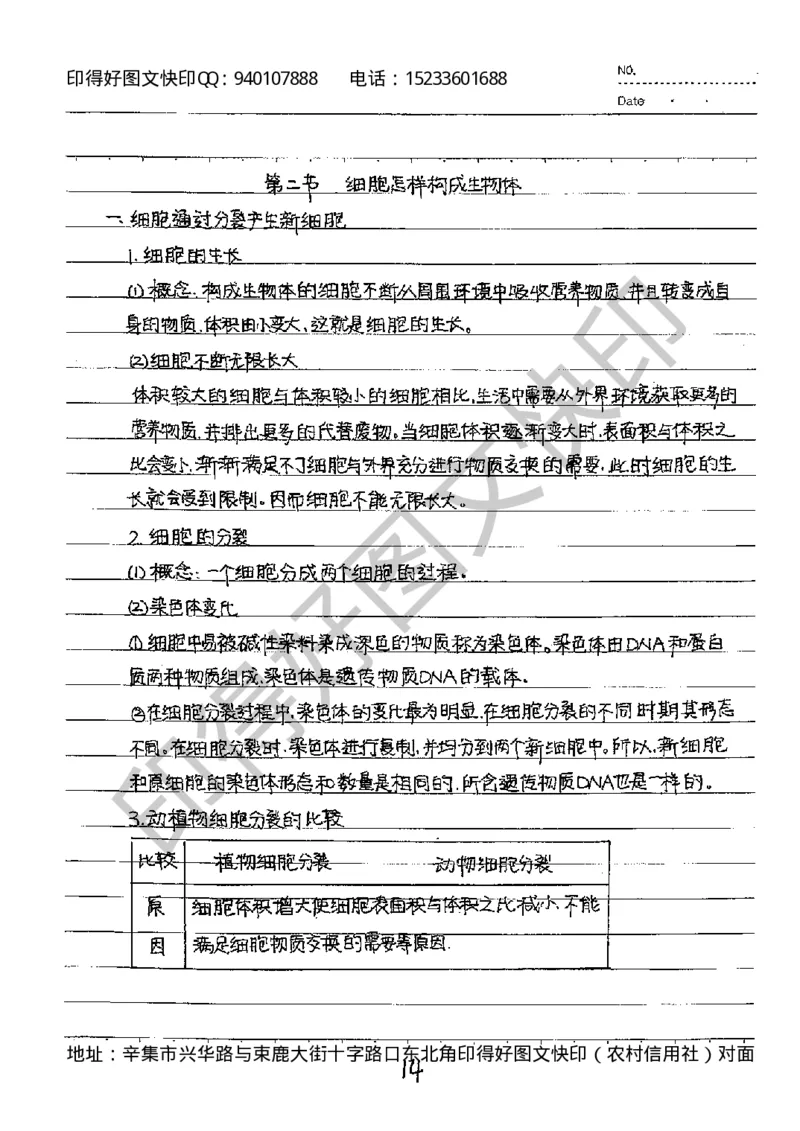 印得好图文快印QQ：940107888 电话：15233601688
NO.
Date
第二节 细胞怎样构成生物体
一、细胞通过分裂产生新细胞
1.细胞的生长
(1)概念：构成生物体的细胞不断从周围环境中吸收营养物质，并且转变成自
身的物质，体积由小变大，这就是细胞的生长。
(2)细胞不断无限长大
体积较大的细胞与体积较小的细胞相比，生活中需要从外界环境获取更多的
营养物质，并排出更多的代替废物。当细胞体积逐渐变大时，表面积与体积之
比会变小，渐渐满足不了细胞与外界充分进行物质交换的需要，此时细胞的生
长就会受到限制。因而细胞不能无限长大。
2.细胞的分裂
(1)概念：一个细胞分成两个细胞的过程。
(2)染色体变化
①细胞中易被碱性染料染成深色的物质称为染色体。染色体由DNA和蛋白
质两种物质组成，染色体是遗传物质DNA的载体。
②在细胞分裂过程中，染色体的变化最为明显，在细胞分裂的不同时期其形态
不同。在细胞分裂时，染色体进行复制，并均分到两个新细胞中。所以，新细胞
和原细胞的染色体形态和数量是相同的，所含遗传物质DNA也是一样的。
3.动植物细胞分裂的比较
比较 植物细胞分裂 动物细胞分裂
原 细胞体积增大使细胞表面积与体积之比减小，不能
因 满足细胞物质交换的需要等原因.
地址：辛集市兴华路与束鹿大街十字路口东北角印得好图文快印（农村信用社）对面
14
印得好图文快印